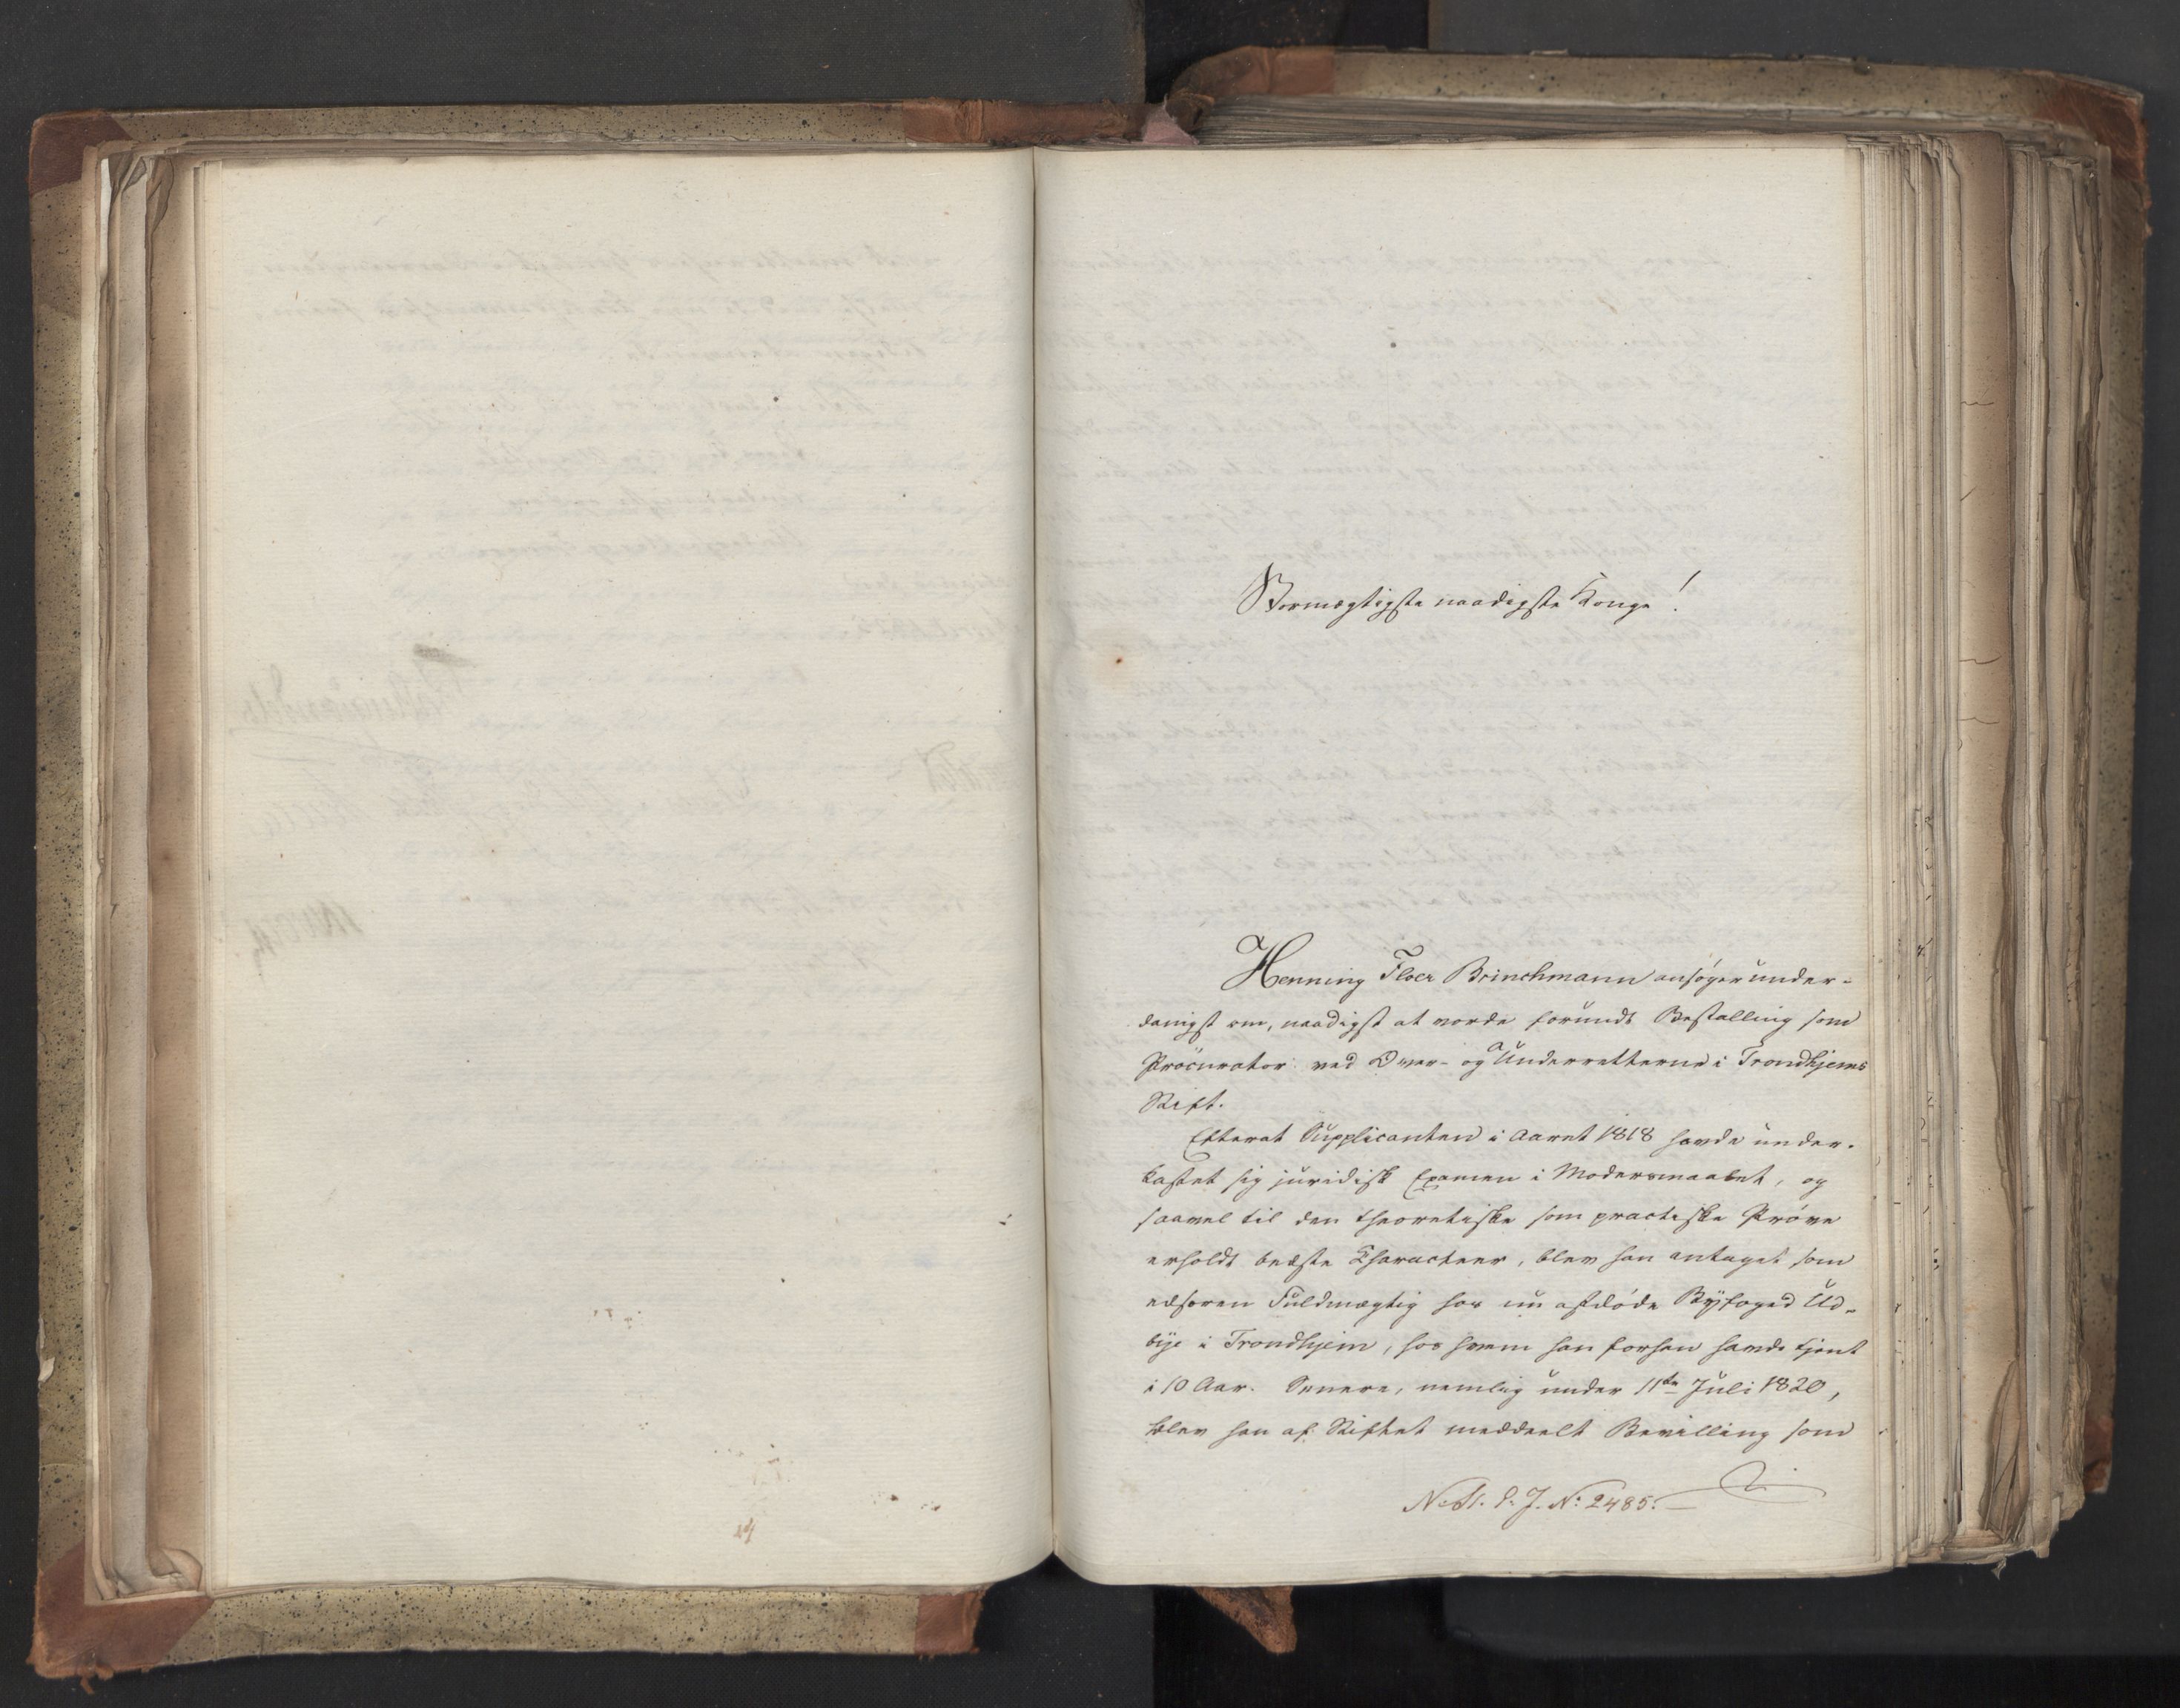 Stormægtigste naadigste Konge!
Henning Floer Brinchmann ansøger under-
danigst om, naadigst at vorde forundt Bestalling som
Procurator ved Over- og Underretterne i Trondhjems
Stift.
Efterat Supplicanten i Aaret 1818 havde under-
kastet sig juridisk Examen i Modersmaalet, og
saavel til den theoretiske som practiske Prøve
erholdt bedste Characteer, blev han antaget som
edsoren Fuldmægtig hos nu afdøde Byfoged Ud-
bye i Trondhjem, hos hvem han forhen havde tjent
i 10 Aar. Senere, nemlig under 11te Juli 1820,
blev han af Stiftet meddeelt Bevilling som
No: 2485.